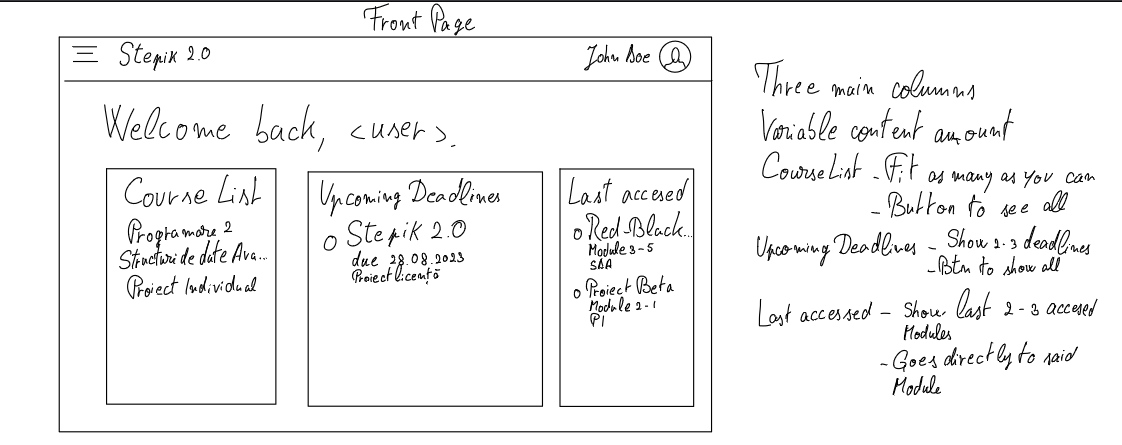 Front Page
Stepik 2.0
John Doe
Welcome back, <user>.
Course List
Programare 2
Structuri de date Ava...
Proiect Individual
Upcoming Deadlines
Stepik 2.0
due 28.08.2023
Proiect licență
Last accesed
Red-Black...
Module 3-5
SDA
Proiect Beta
Module 2-1
PI
Three main columns
Variable content amount
Course List - Fit as many as you can
- Button to see all
Upcoming Deadlines - Show 2-3 deadlines
- Btn to show all
Last accessed - Show last 2-3 accesed
Modules
- Goes directly to said
Module